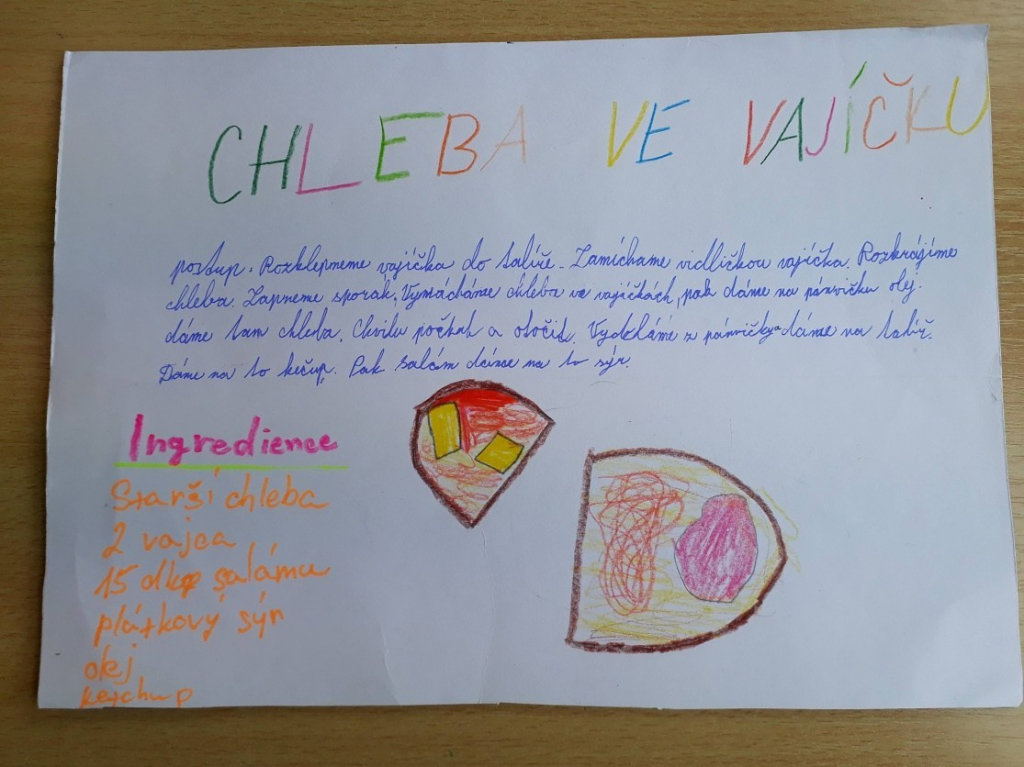 CHLEBA VE VAJÍČKU
postup. Rozklepneme vajíčka do talíře. Zamícháme vidličkou vajíčka. Rozkrájíme
chleba. Zapneme sporák. Vymácháme chleba ve vajíčkách, pak dáme na pánvičku olej.
dáme tam chleba. Chvilku počkat a otočit. Vyndáme z pánvičky a dáme na talíř.
Dáme na to kečup. Pak salám dáme na to sýr.
Ingredience
Starší chleba
2 vajca
15 dkg salámu
plátkový sýr
olej
ketchup